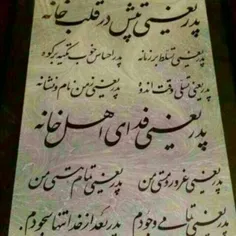 پدر یعنی تپش در قلب خانه
پدر یعنی تسلط بر زمانه پدر احساس خوب تکیه بر کوه
پدر یعنی تسلی وقت اندوه پدر یعنی ز من نام و نشانه
پدر یعنی فدای اهل خانه
پدر یعنی غرور و مستی من پدر یعنی تمام هستی من
پدر یعنی تمام وجودم پدر بعد از خدا تنها سجودم